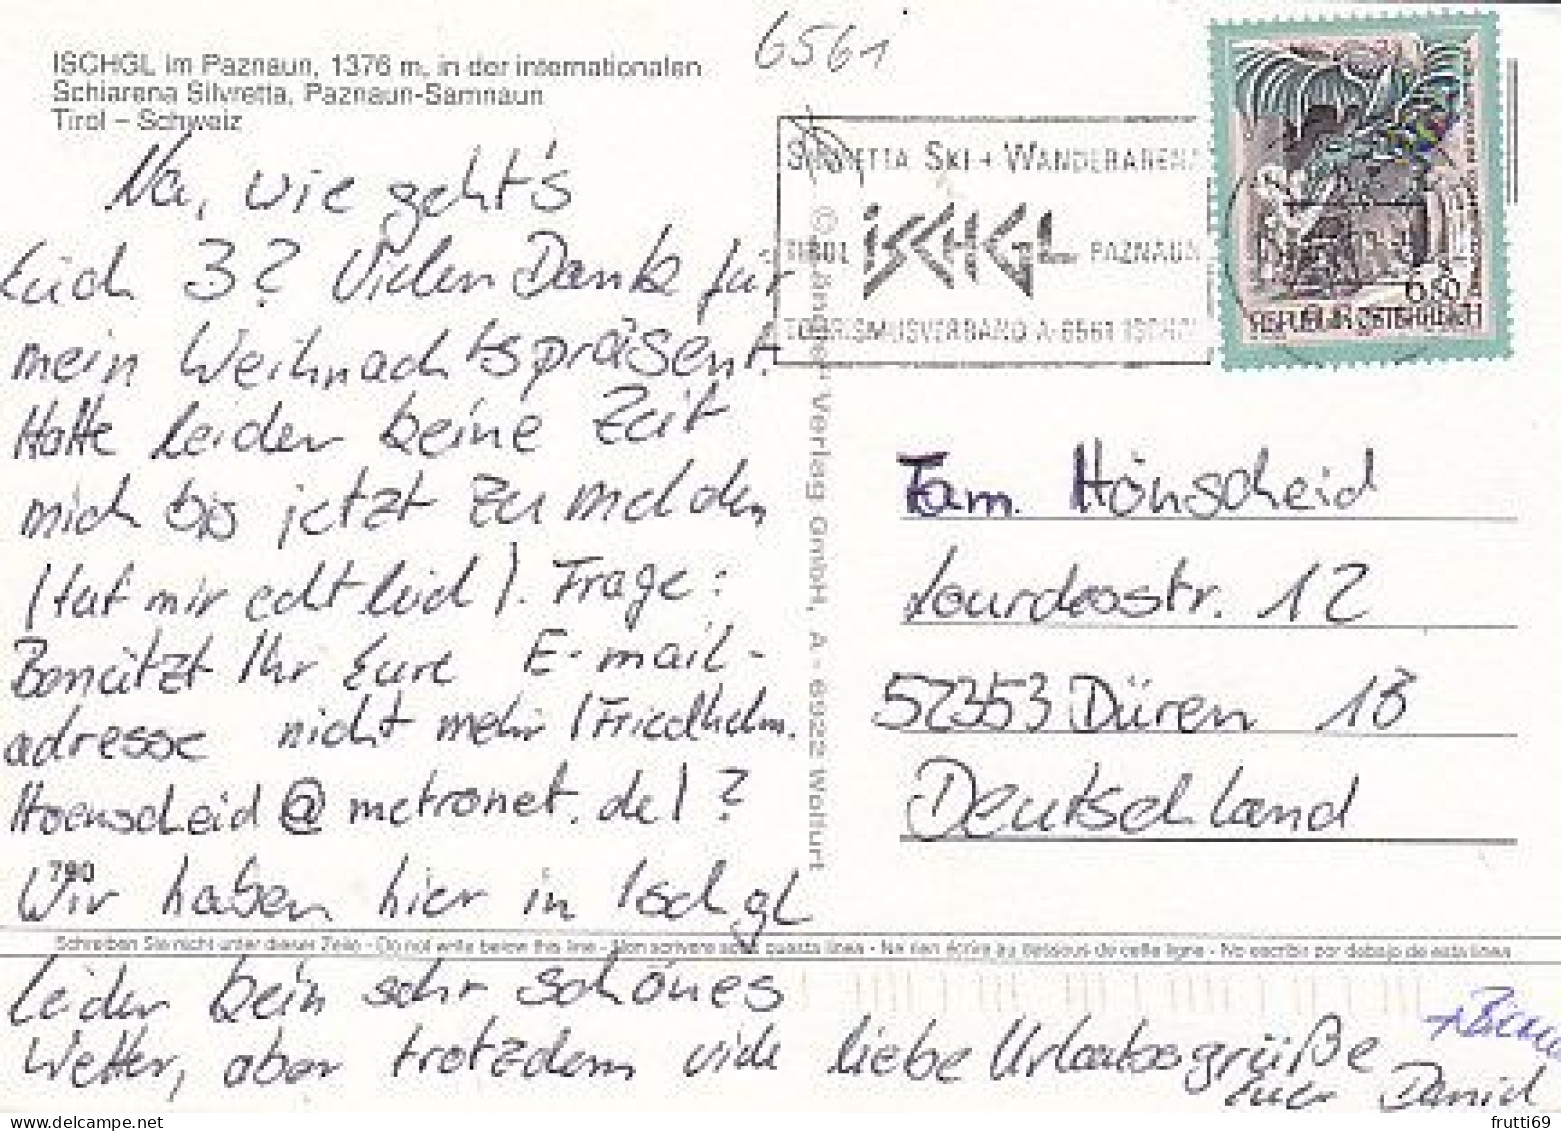 6561
ISCHGL im Paznaun, 1376 m, in der internationalen
Schiarena Silvretta, Paznaun-Samnaun
Tirol – Schweiz
Na, wie geht's
Euch 3? Vielen Dank für
mein Weihnachtspräsent.
Hatte leider keine Zeit
mich bis jetzt zu melden
(tut mir echt leid). Frage:
Benützt Ihr Eure E-mail-
adresse nicht mehr (Friedhelm.
Hoenscheid@metronet.de)?
790
Wir haben hier in Ischgl
Schreiben Sie nicht unter dieser Zeile - Do not write below this line - Non scrivere sotto questa linea - Ne rien écrire au dessous de cette ligne - No escribir por debajo de esta linea
leider kein sehr schönes
Wetter, aber trotzdem viele liebe Urlaubsgrüße
Euer Daniel
SILVRETTA SKI + WANDERARENA
TIROL ISCHGL PAZNAUN
TOURISMUSVERBAND A-6561 ISCHGL
6.80
REPUBLIK ÖSTERREICH
Verlag GmbH, A - 6922 Wolfurt
Fam. Hönscheid
Lourdesstr. 12
52353 Düren 13
Deutschland
frutti69